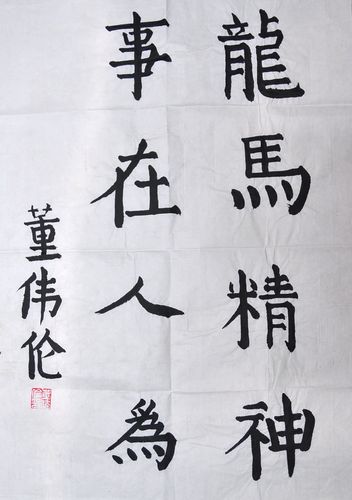 龍馬精神
事在人為
董伟伦